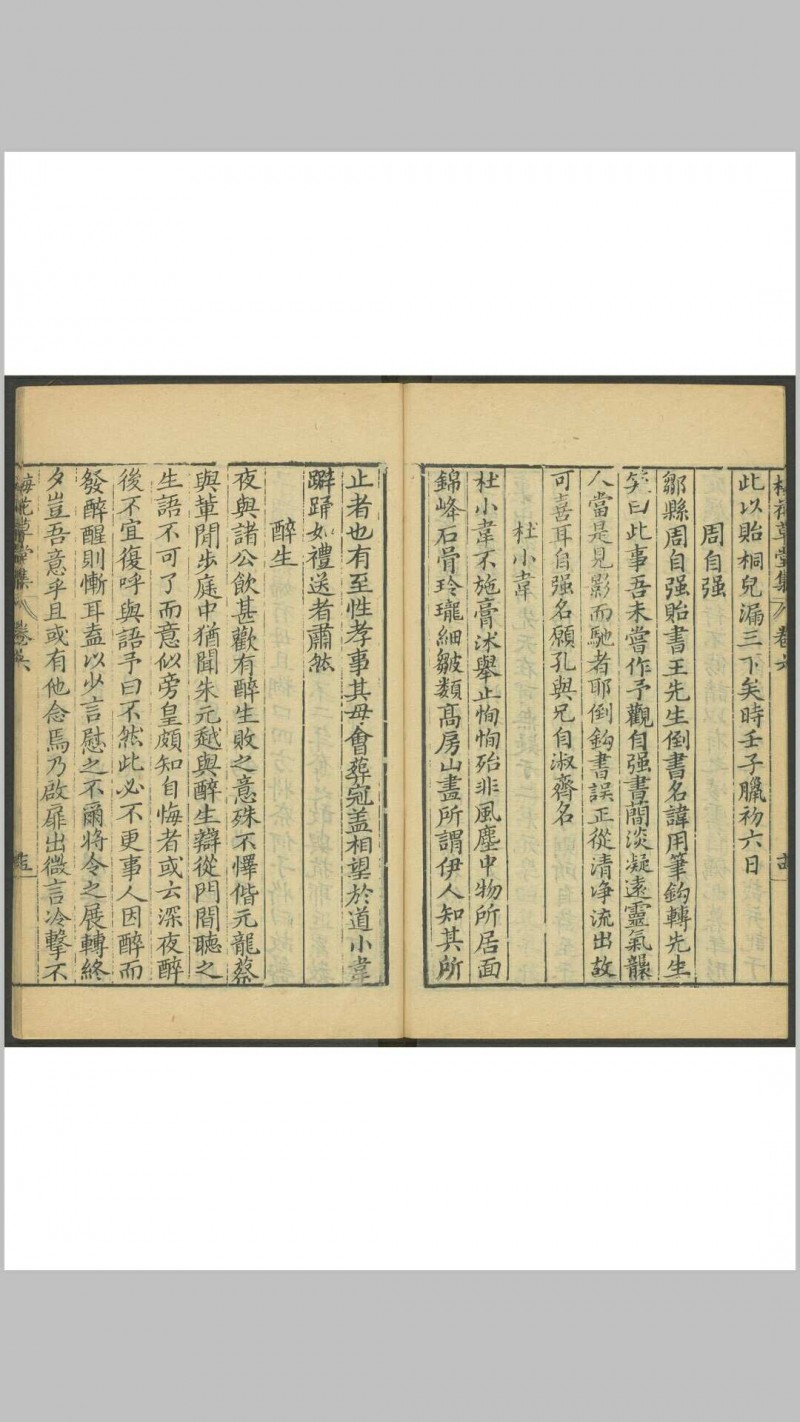 梅花草堂集 卷六 十四
此以貽桐兒漏三下矣時壬子臘初六日
周自强
鄒縣周自强貽書王先生倒書名諱用筆鈎轉先生
笑曰此事吾未嘗作予觀自强書蕳淡凝遠靈氣䯢
人當是見影而馳者耶倒鈎書誤正從清淨流出故
可喜耳自强名願孔與兄自淑齊名
杜小韋
杜小韋不施膏沐舉止恂恂殆非風塵中物所居面
錦峰石骨玲瓏細皺類髙房山畫所謂伊人知其所
止者也有至性孝事其母會葬冠盖相望於道小韋
躃踊如禮送者肅然
醉生
夜與諸公飲甚歡有醉生敗之意殊不懌偕元龍蔡
與軰閒步庭中猶聞朱元越與醉生辯從門間聽之
生語不可了而意似旁皇頗知自悔者或云深夜醉
後不宜復呼與語予曰不然此必不更事人因醉而
發醉醒則慚耳盍以少言慰之不爾將令之展轉終
夕豈吾意乎且或有他念焉乃啟扉出微言冷擊不
梅花草堂集 卷六